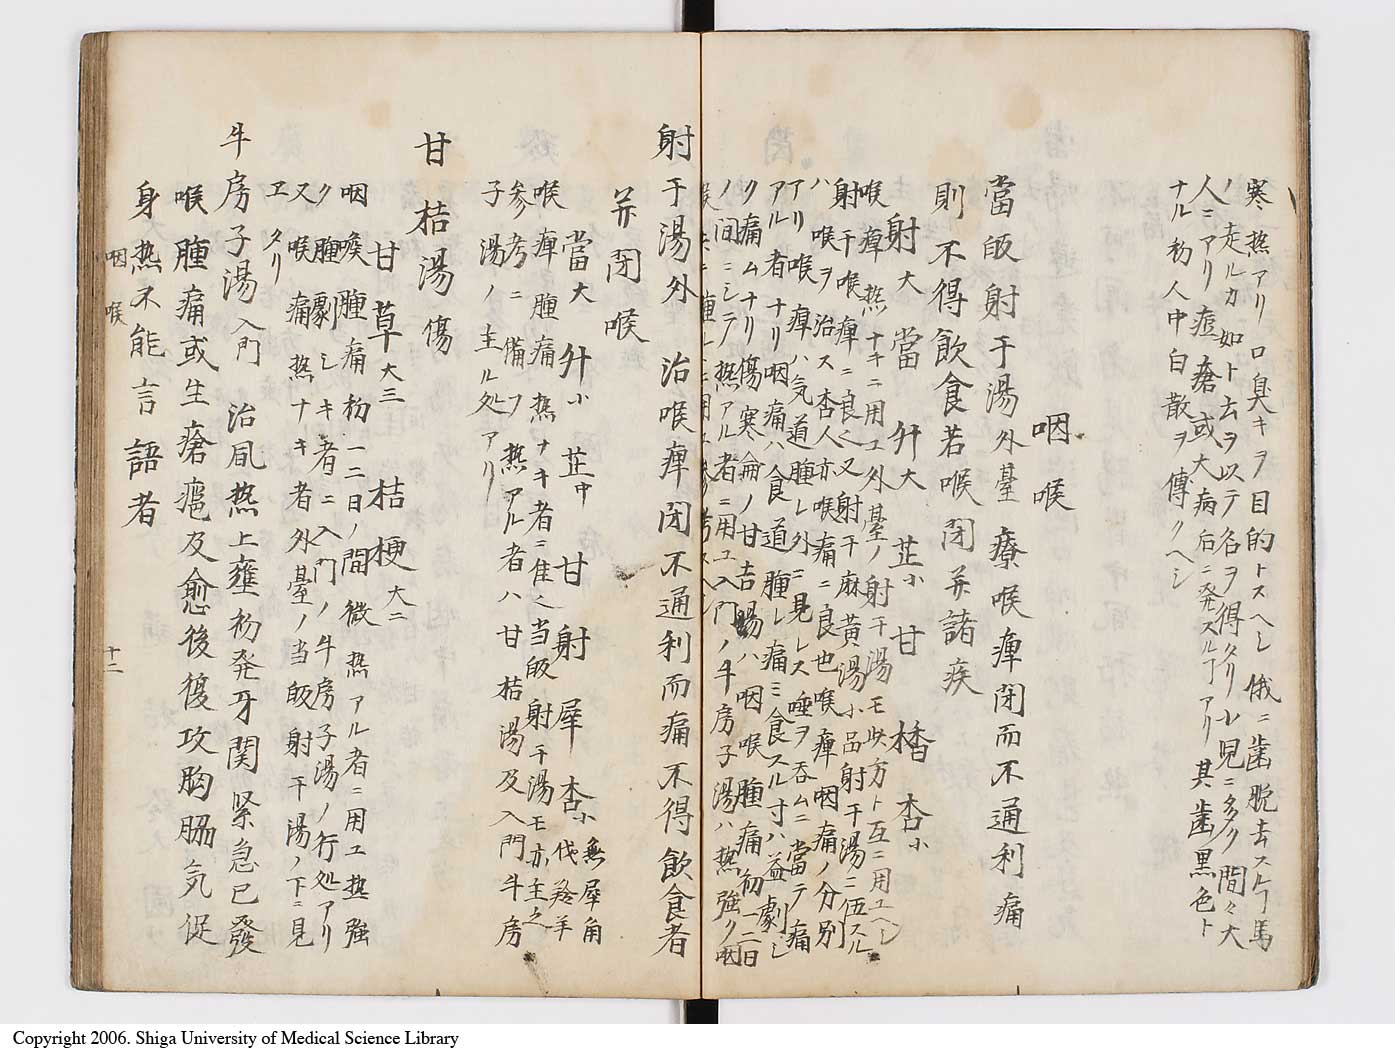 寒熱アリ口臭キヲ目的トスヘシ俄ニ歯脱去スル丁馬
ノ走ルカ如ト云ヲ以テ名ヲ得タリ小児ニ多ク間々大
人ニアリ痘瘡或大病后ニ発スル丁アリ其歯黒色ト
ナル初人中白散ヲ傳クヘシ
咽喉
當皈射干湯外臺療喉痺閉而不通利痛
則不得飲食若喉閉并諸疾
射大當升大芷小甘楿杏小
喉痺熱ナキニ用ユ外臺ノ射干湯モ此方ト互ニ用ユヘシ
射干喉痺ニ良之又射干麻黄湯小品射干湯ニ伍スル
ハ喉ヲ治ス杏人亦喉痛ニ良也喉痺咽痛ノ分別
アリ喉痺ハ気道腫レ外ニ見レス唾ヲ呑ムニ當テ痛
アル者ナリ咽痛ハ食道腫レ痛ミ食スル寸ハ益劇シ
ク痛ムナリ傷寒侖ノ甘吉湯ハ咽喉腫痛初一二日
ノ間ニシテ熱アル者ニ用ユ入門ノ牛房子湯ハ熱強ク咽
喉共ニ腫ルニ用ユ参考スヘシ
射干湯外治喉痺閉不通利而痛不得飲食者
并閉喉
當大升小芷中甘射犀杏小無犀角代羚羊
喉痺腫痛熱ナキ者ニ隹之当皈射干湯モ亦主之
参考ニ備フ熱アル者ハ甘桔湯及入門牛房
子湯ノ主ル処アリ
甘桔湯傷
甘草大三桔梗大二
咽喉腫痛初一二日ノ間微熱アル者ニ用ユ熱強
ク腫劇シキ者ニ入門ノ牛房子湯ノ行処アリ
又喉痛熱ナキ者外臺ノ当皈射干湯ノ下ニ見
ヱタリ
牛房子湯入門治風熱上壅初発牙関緊急已發
喉腫痛或生瘡瘡及愈後復攻胸脇気促
身熱不能言語者
咽喉
十二
Copyright 2006. Shiga University of Medical Science Library